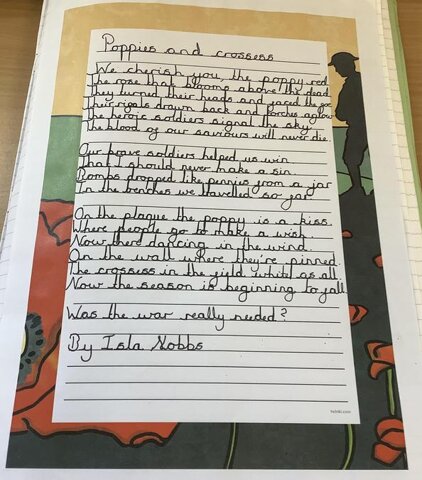 Poppies and crossess
We cherish you, the poppy red
The rose that blooms above the dead
They turned their heads and faced the foe
Their rigals drawn back and torches aglow
The heroic soldiers signal the sky
The blood of our saviours will never die.
Our brave soldiers helped us win
That I should never make a sin
Bombs dropped like pennies from a jar
In the trenches we travelled so far
On the plaque the poppy is a kiss
Where people go to make a wish
Now there dancing in the wind
On the wall where they're pinned
The crossess in the field white as all
Now the season is beginning to fall
Was the war really needed?
By Isla Nobbs
twinkl.com